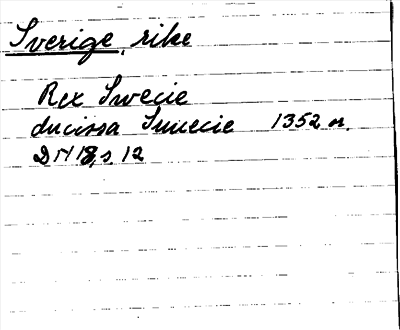 Sverige, rike
Rex Swecie
ducissa Suuecie 1352 n.
s. 12